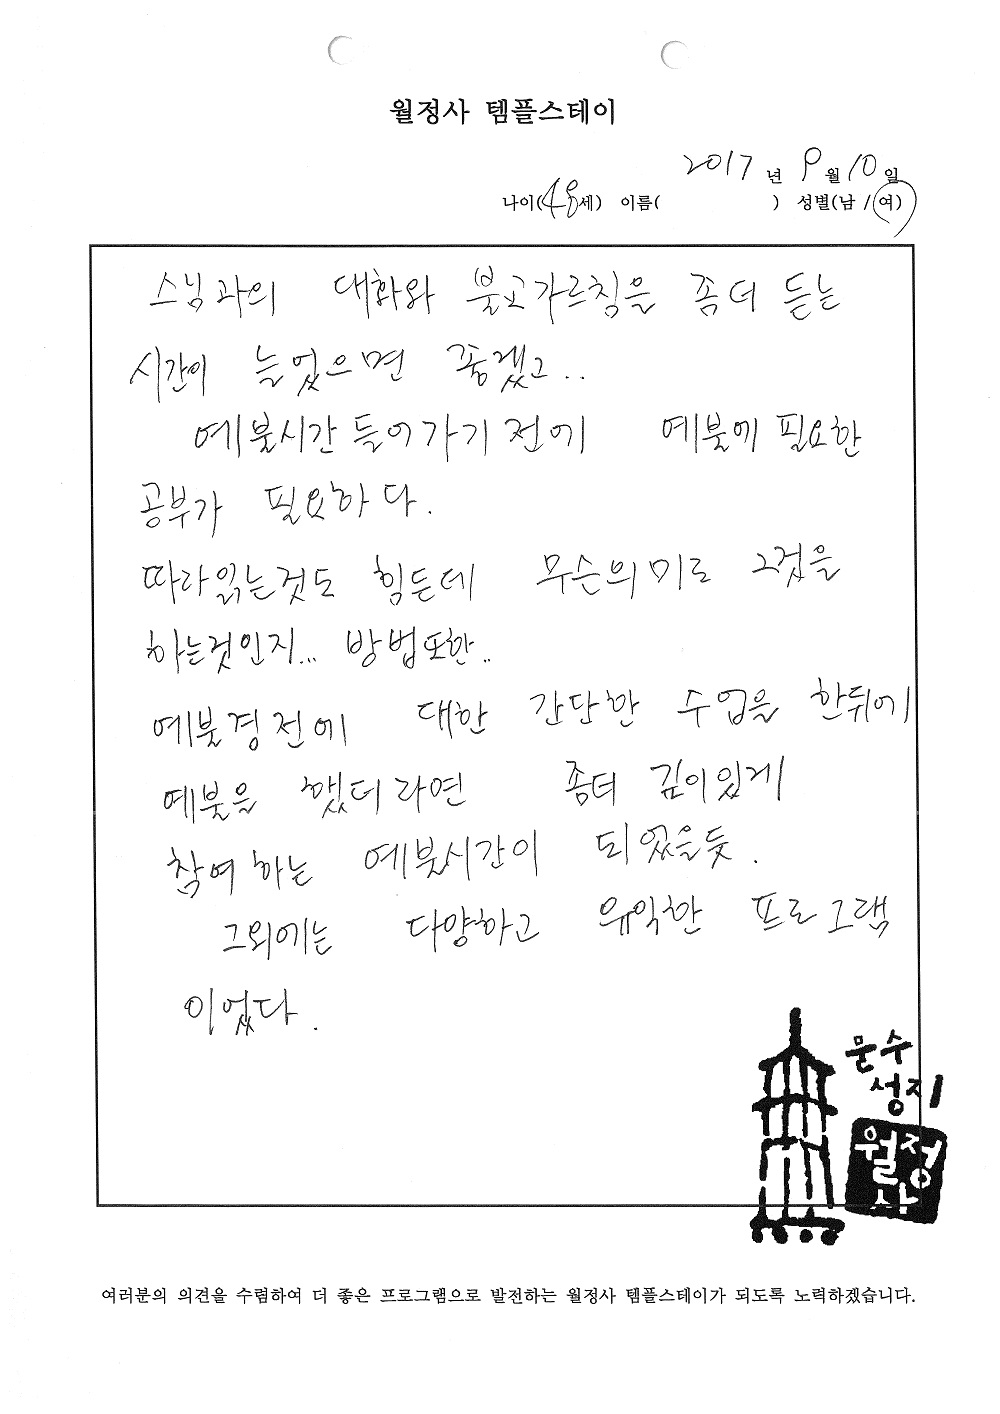 월정사 템플스테이
2017 년 9 월 10 일
나이(48세) 이름( ) 성별(남 / 여)
스님과의 대화와 불교가르침을 좀더 듣는
시간이 늘었으면 좋겠고..
예불시간 들어가기 전에 예불에 필요한
공부가 필요하다.
따라읽는것도 힘든데 무슨의미로 그것을
하는것인지... 방법또한..
예불경전에 대한 간단한 수업을 한뒤에
예불을 했더라면 좀더 깊이있게
참여하는 예불시간이 되었을듯.
그외에는 다양하고 유익한 프로그램
이었다.
문수
성지
월정
사
여러분의 의견을 수렴하여 더 좋은 프로그램으로 발전하는 월정사 템플스테이가 되도록 노력하겠습니다.